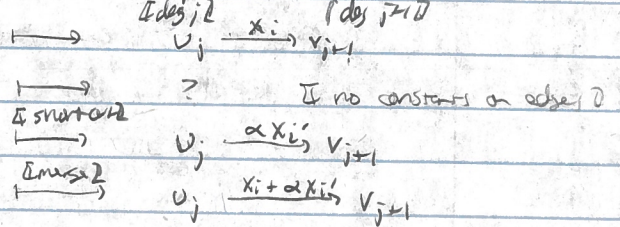 [deg j] [deg j+1]
↦ υ_j —x_i→ v_{j+1}
↦ ? [ no constants on edges ]
[shortcut]
↦ υ_j —αx_i'→ v_{j+1}
[merge]
↦ υ_j —x_i + αx_i'→ v_{j+1}